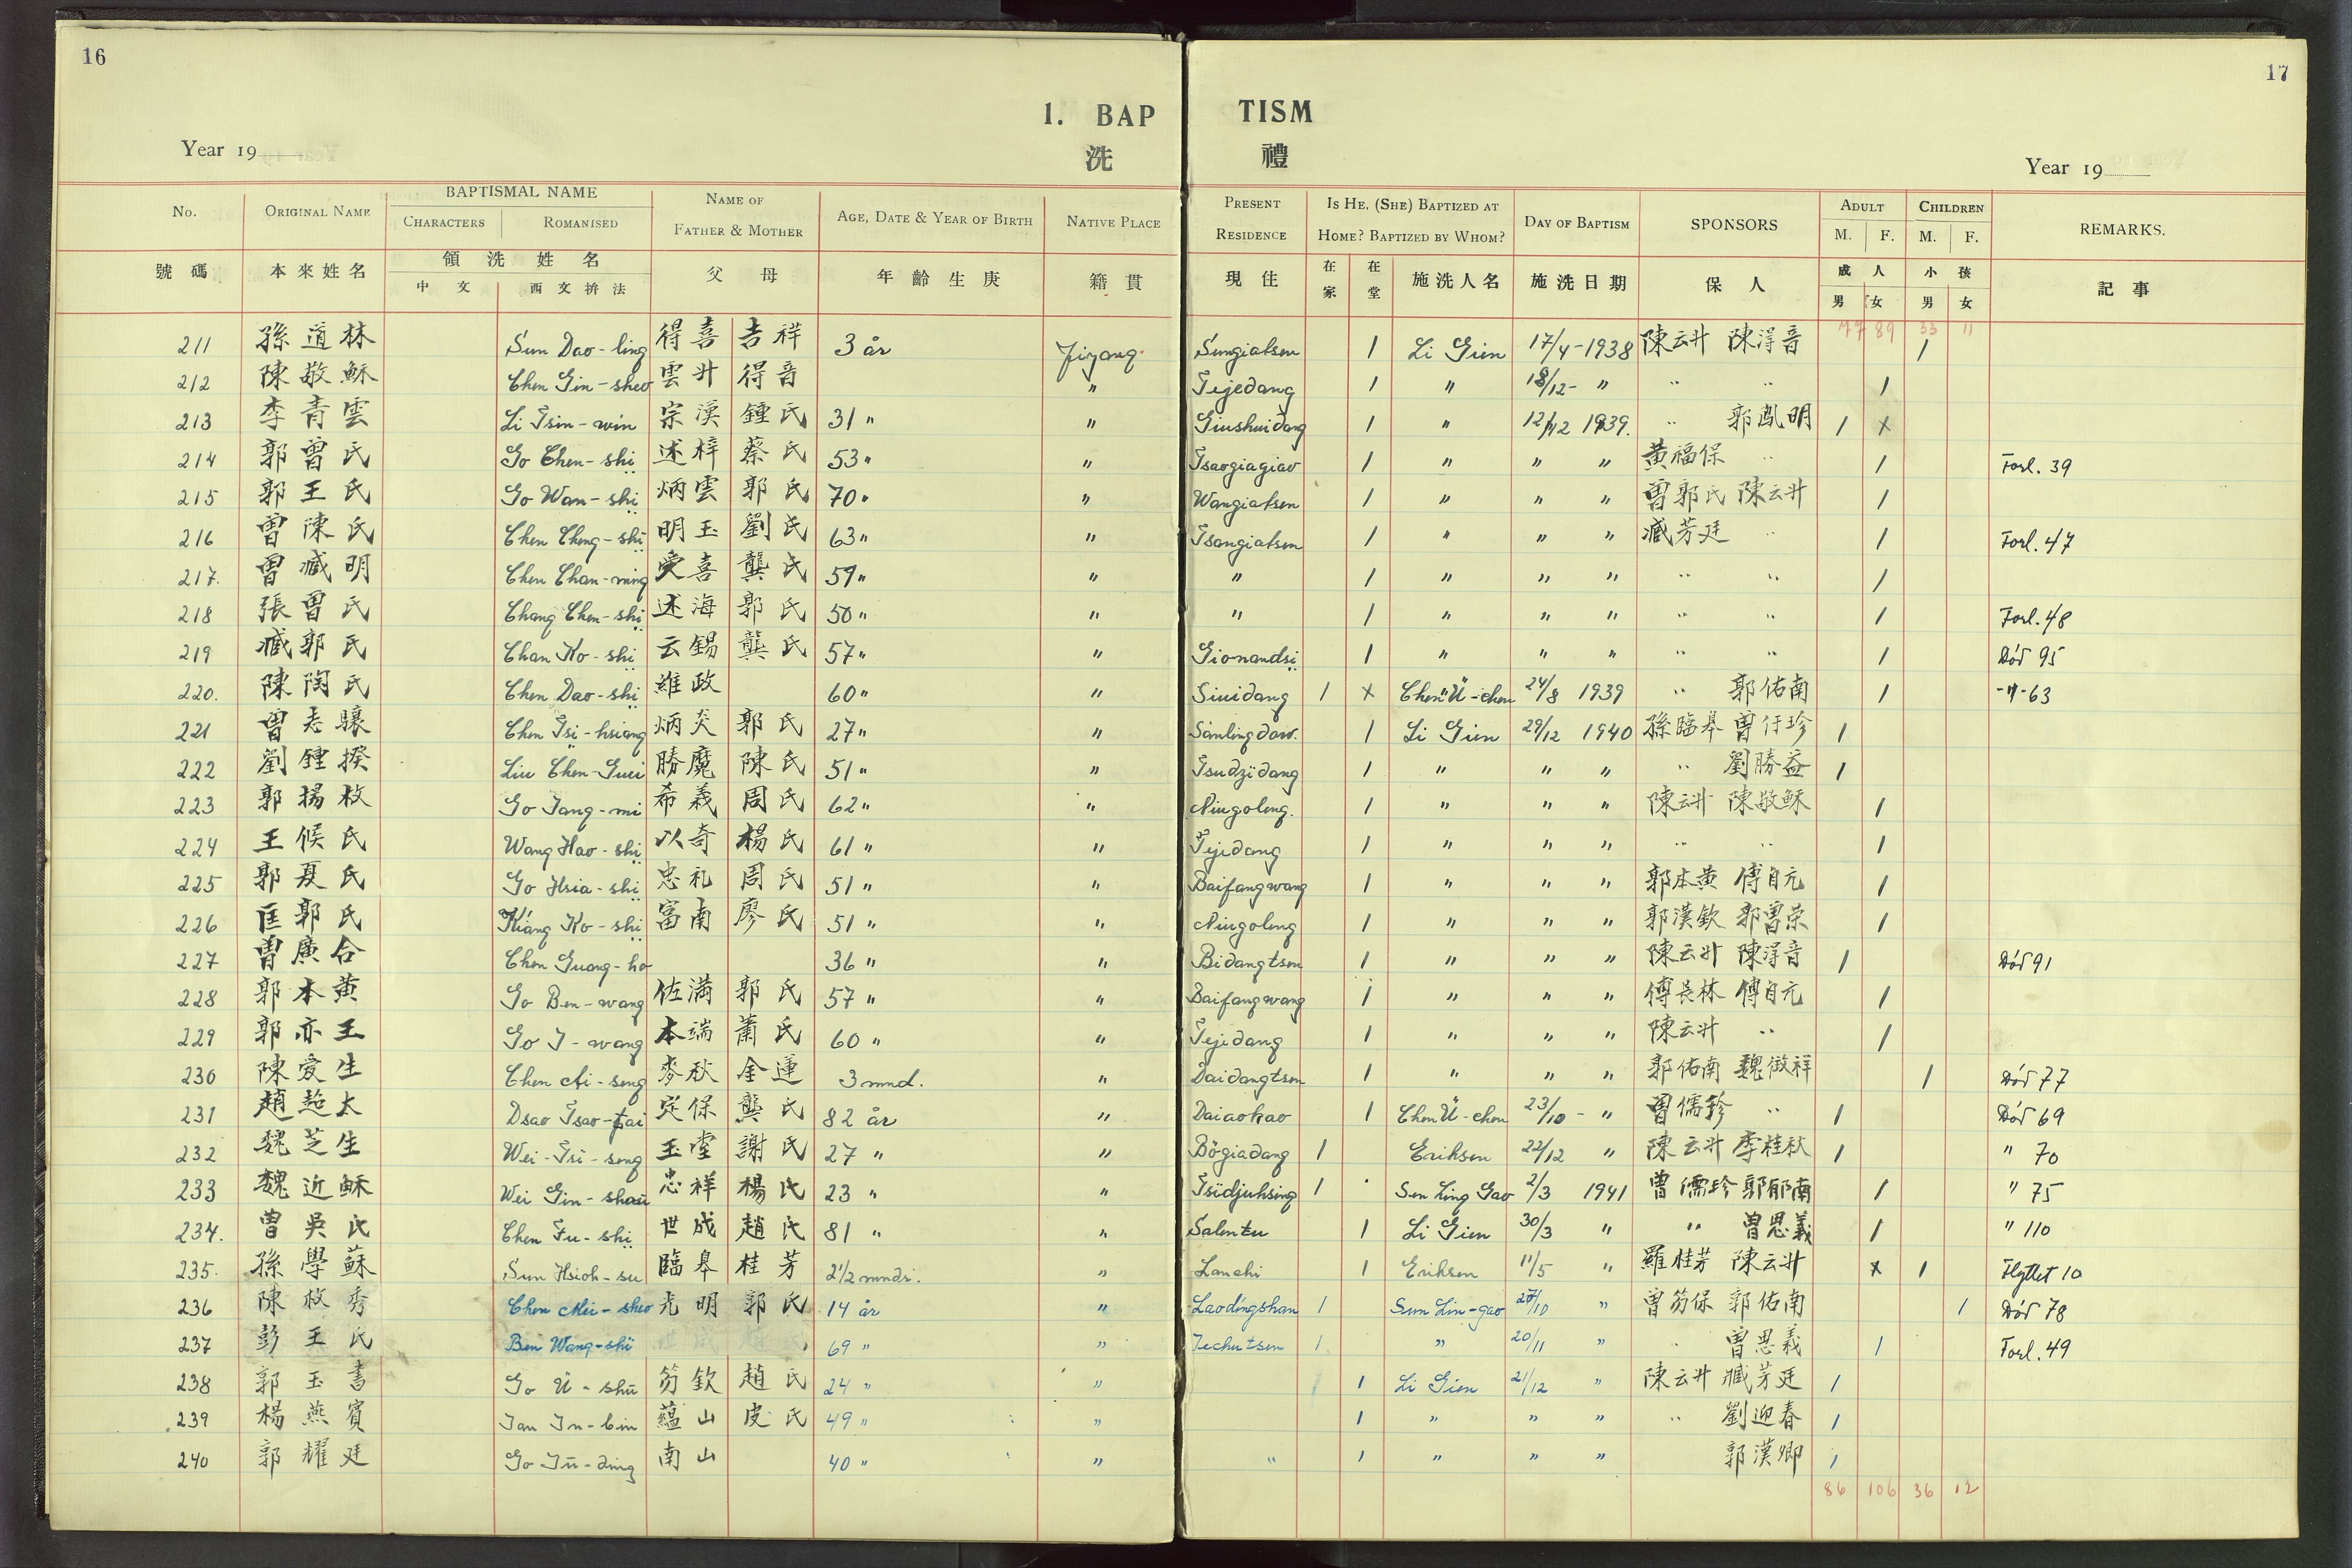 16
17
1. BAP TISM
洗 禮
Year 19
Year 19
No. ORIGINAL NAME BAPTISMAL NAME CHARACTERS ROMANISED NAME OF FATHER & MOTHER AGE, DATE & YEAR OF BIRTH NATIVE PLACE PRESENT RESIDENCE IS HE, (SHE) BAPTIZED AT HOME? BAPTIZED BY WHOM? DAY OF BAPTISM SPONSORS ADULT M. F. CHILDREN M. F. REMARKS.
號碼 本來姓名 領洗姓名 中文 西文拚法 父母 年齡生庚 籍貫 現住 在家 在堂 施洗人名 施洗日期 保人 成人 男 女 小孩 男 女 記事
77 89 33 11
211 孫道林 Sun Dao-ling 得喜 吉祥 3 år Jiyang Sungiatsen 1 Li Gien 17/4-1938 陳云升 陳淂音 1
212 陳敬穌 Chen Gin-sheo 雲升 得音 " Tejedang 1 " 18/12- " " " 1
213 李青雲 Li Tsin-win 宗漢 鍾氏 31 " " Giushuidang 1 " 12/12 1939. " 郭鳳明 1 x
214 郭曾氏 Go Chen-shi 述梓 蔡氏 53 " " Tsaogiagiao 1 " " " 黃福保 " 1 Forl. 39
215 郭王氏 Go Wan-shi 炳雲 郭氏 70 " " Wangiatsen 1 " " " 曾郭氏 陳云升 1
216 曾陳氏 Chen Cheng-shi 明玉 劉氏 63 " " Tsangiatsen 1 " " " 臧芳廷 " 1 Forl. 47
217. 曾臧明 Chen Chan-ming 受喜 龔氏 59 " " " 1 " " " " " 1
218 張曾氏 Chang Chen-shi 述海 郭氏 50 " " " 1 " " " " " 1 Forl. 48
219 臧郭氏 Chan Ko-shi 云錫 龔氏 57 " " Gionandsi 1 " " " " " 1 Död 95
220. 陳陶氏 Chen Dao-shi 維政 60 " " Siuidang 1 x Chen Ü-chen 24/8 1939 " 郭佑南 1 -"-63
221 曾志驤 Chen Tsi-hsiang 炳炎 郭氏 27 " " Sanlingdaw. 1 Li Gien 29/12 1940 孫臨皋 曾仔珍 1
222 劉鍾揆 Liu Chen-Guei 勝魔 陳氏 51 " " Tsudzidang 1 " " " " 劉勝益 1
223 郭揚枚 Go Jang-mi 希義 周氏 62 " " Niugoleng. 1 " " " 陳云升 陳敬穌 1
224 王候氏 Wang Hao-shi 以奇 楊氏 61 " " Tejedang 1 " " " " " 1
225 郭夏氏 Go Hsia-shi 忠礼 周氏 51 " " Baifangwang 1 " " " 郭本黄 傅自元 1
226 匡郭氏 Kiang Ko-shi 富南 廖氏 51 " " Niugoleng 1 " " " 郭漢欽 郭曾荣 1
227 曾廣合 Chen Guang-ho 36 " " Bidangtsen 1 " " " 陳云升 陳淂音 1 Död 91
228 郭本黄 Go Ben-wang 佐滿 郭氏 57 " " Baifangwang 1 " " " 傅長林 傅自元 1
229 郭亦王 Go I-wang 本端 蕭氏 60 " " Tejedang 1 " " " 陳云升 " 1
230 陳爱生 Chen Ai-seng 麥秋 金蓮 3 mnd. " Daidangtsen 1 " " " 郭佑南 魏徵祥 1 Död 77
231 趙超太 Dsao Tsao-tai 定保 龔氏 82 år " Daiaohao 1 Chen Ü-chen 23/10 - " 曾儒珍 " 1 Död 69
232 魏芝生 Wei-Tsi-seng 玉堂 謝氏 27 " " Bögiadang 1 Eriksen 22/12 " 陳云升 李桂秋 1 " 70
233 魏近穌 Wei Gin-shau 忠祥 楊氏 23 " " Tsidjuhsing 1 Sen Ling Gao 2/3 1941 曾儒珍 郭郁南 1 " 75
234. 曾吳氏 Chen Fu-shi 世成 趙氏 81 " " Salentu 1 Li Gien 30/3 " " 曾思義 1 " 110
235. 孫學蘇 Sun Hsioh-su 臨皋 桂芳 2 1/2 mndr. " Lanchi 1 Eriksen 11/5 " 羅桂芳 陳云升 x 1 Flyttet 10
236 陳枚秀 Chen Mei-sheo 光明 郭氏 14 år " Laodingshan 1 Sun Lin-gao 27/10 " 曾笏保 郭佑南 1 Död 78
237 彭王氏 Ben Wang-shi 69 " " Techutsen 1 " 20/11 " " 曾思義 1 Forl. 49
238 郭玉書 Go Ü-shu 笏欽 趙氏 24 " " 1 Li Gien 21/12 " 陳云升 臧芳廷 1
239 楊燕賓 Jan In-bin 蘊山 皮氏 49 " " 1 " " " " 劉迎春 1
240 郭耀廷 Go Jü-ding 南山 40 " " " 1 " " " 郭漢卿 1
86 106 36 12